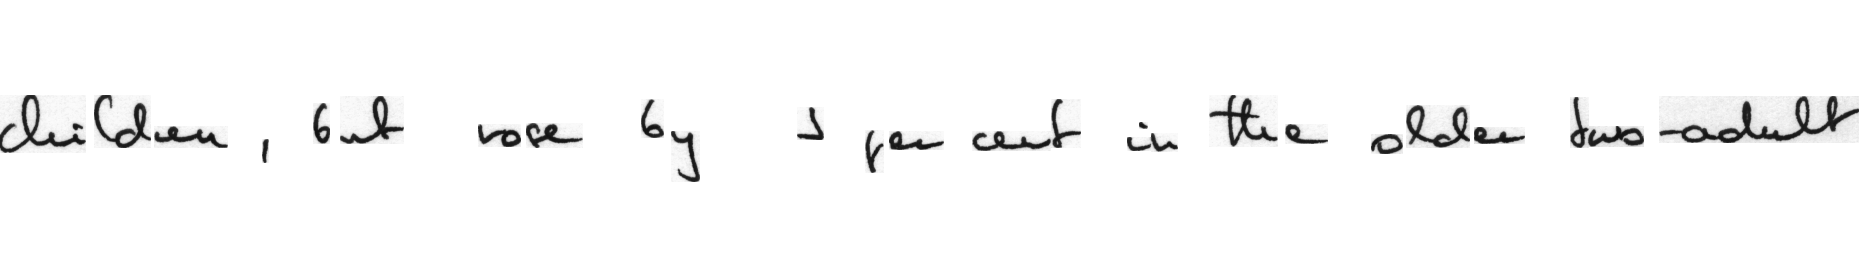 children, but rose by per cent in the older two-adult